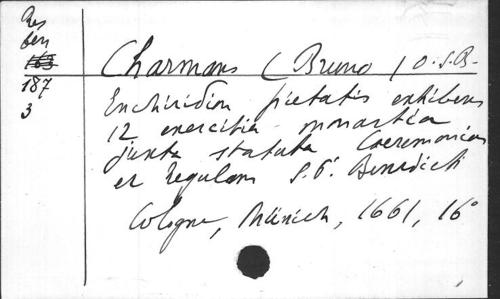 Res
ben
163
187
3
Charmans (Bruno) O.S.B.
Enchiridion pietatis exhibens
12 exercitia monastica
juxta statuta Caeremonias
et Regulam S.P. Benedicti
Cologne, Münich, 1661, 16°